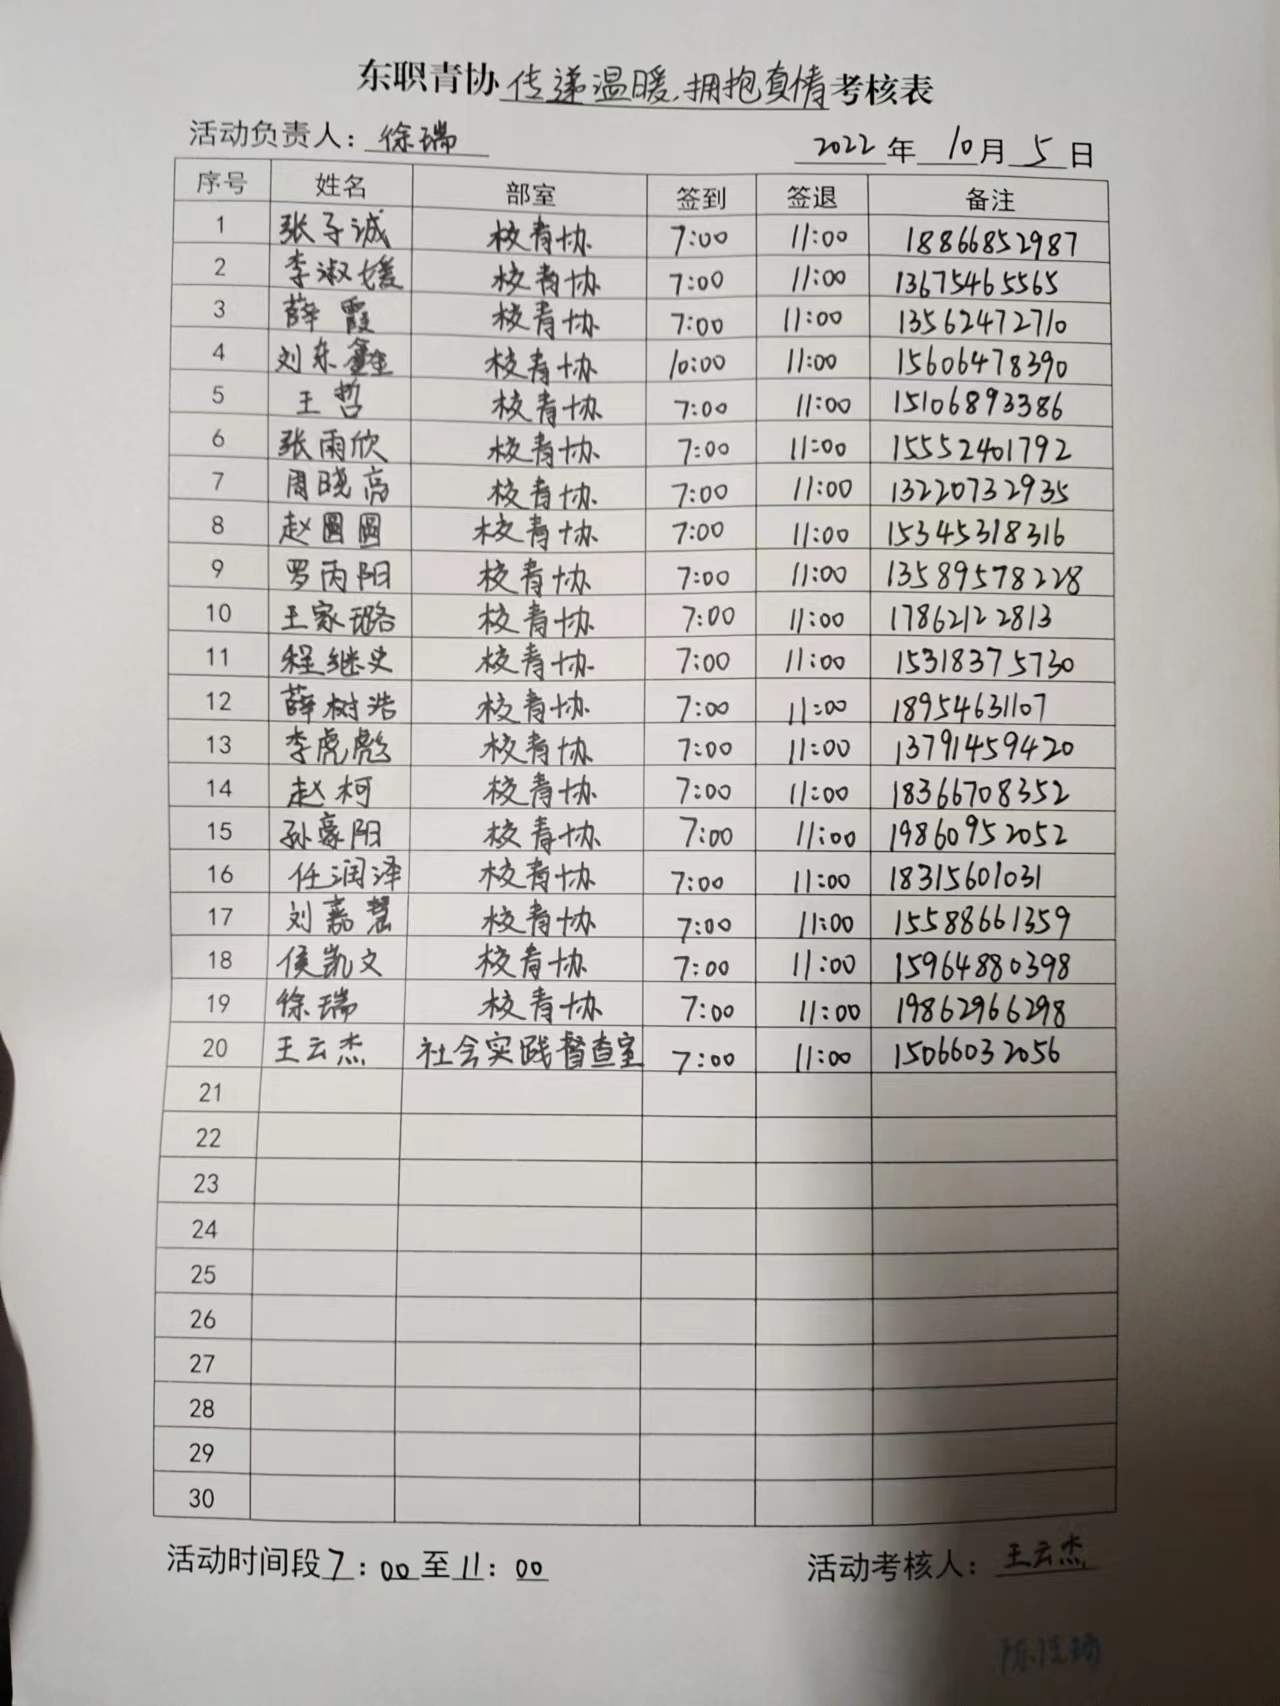 东职青协 传递温暖,拥抱真情 考核表
活动负责人：徐瑞 2022年10月5日
序号 姓名 部室 签到 签退 备注
1 张子诚 校青协 7:00 11:00 18866852987
2 李淑媛 校青协 7:00 11:00 13675465565
3 薛霞 校青协 7:00 11:00 13562472710
4 刘东鑫 校青协 10:00 11:00 15606478390
5 王哲 校青协 7:00 11:00 15106893386
6 张雨欣 校青协 7:00 11:00 15552401792
7 周晓亮 校青协 7:00 11:00 13220732935
8 赵圆圆 校青协 7:00 11:00 15345318316
9 罗丙阳 校青协 7:00 11:00 13589578228
10 王家璐 校青协 7:00 11:00 17862122813
11 程继史 校青协 7:00 11:00 15318375730
12 薛树浩 校青协 7:00 11:00 18954631107
13 李虎彪 校青协 7:00 11:00 13791459420
14 赵柯 校青协 7:00 11:00 18366708352
15 孙豪阳 校青协 7:00 11:00 19860952052
16 任润泽 校青协 7:00 11:00 18315601031
17 刘嘉慧 校青协 7:00 11:00 15588661359
18 侯凯文 校青协 7:00 11:00 15964880398
19 徐瑞 校青协 7:00 11:00 19862966298
20 王云杰 社会实践督查室 7:00 11:00 15066032056
21
22
23
24
25
26
27
28
29
30
活动时间段7：00至11：00 活动考核人：王云杰